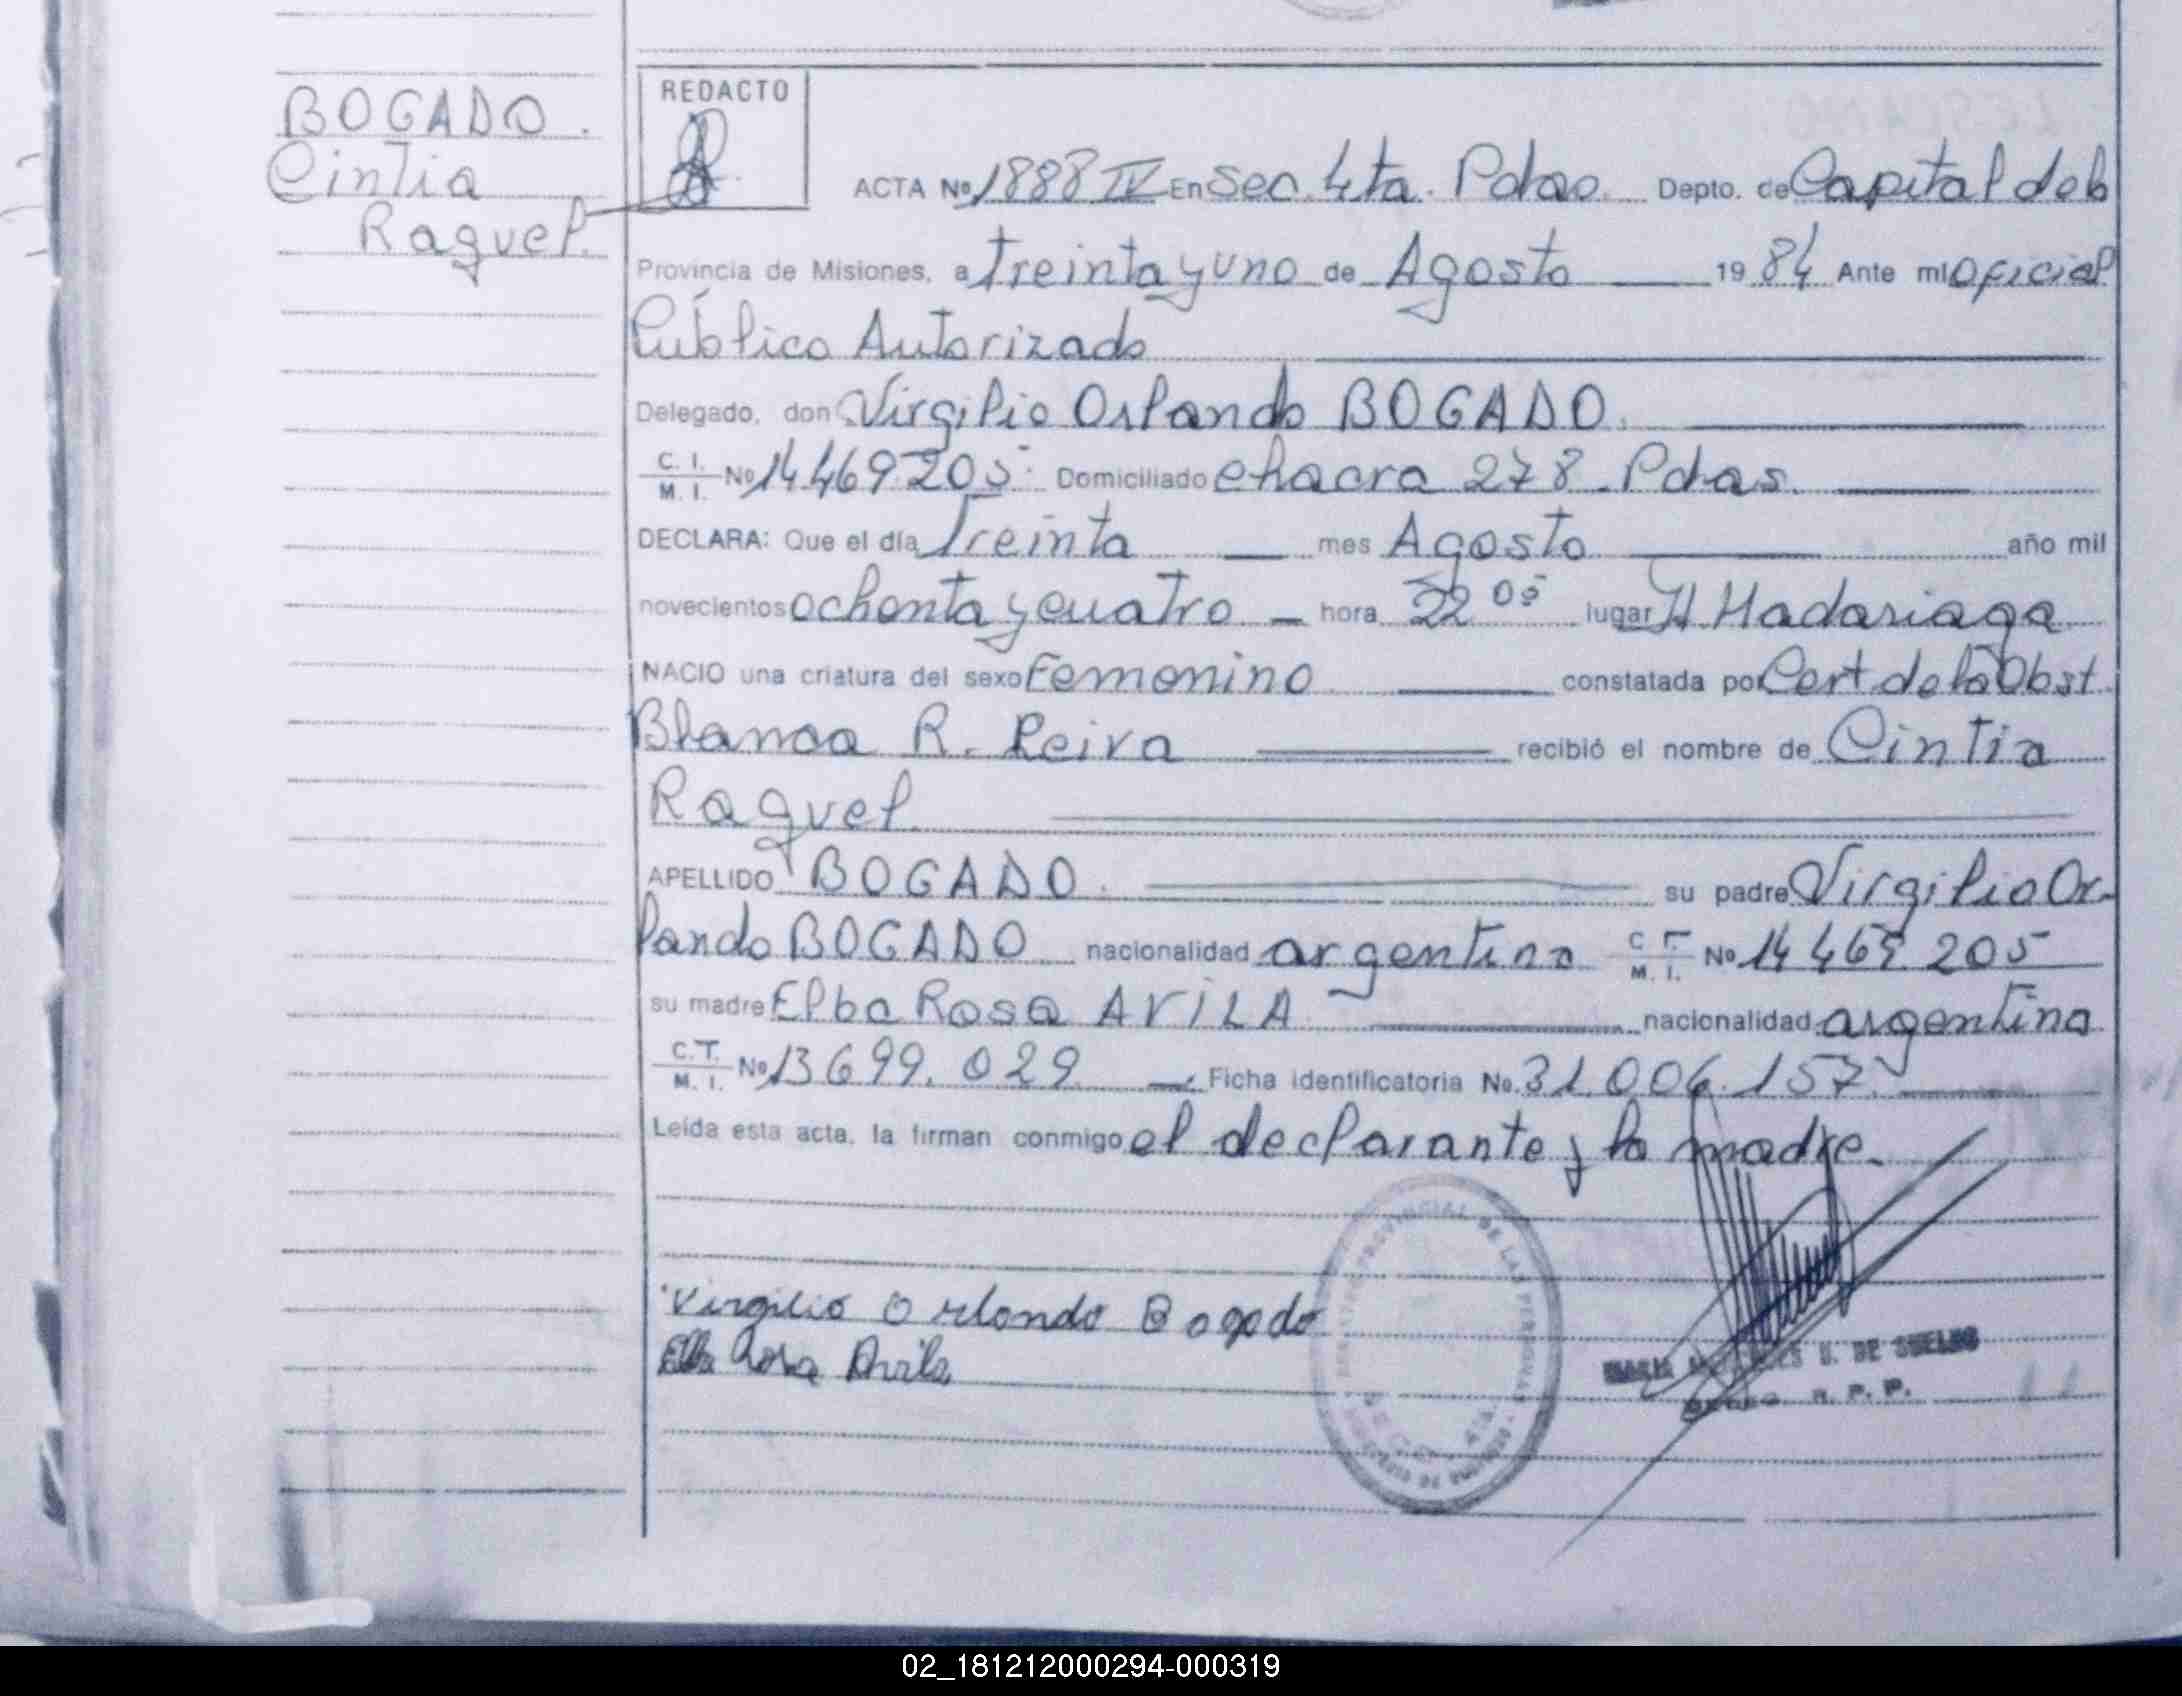 BOGADO.
Cintia
Raquel.
REDACTO
ACTA Nº 1888 IV En Sec. 4ta. Pdas. Depto. de Capital de la
Provincia de Misiones, a treinta y uno de Agosto 19 84 Ante mí Oficial
Público Autorizado
Delegado, don Virgilio Orlando BOGADO.
C. I. M. I. Nº 14469205 Domiciliado chacra 278 - Pdas.
DECLARA: Que el día Treinta mes Agosto año mil
novecientos ochenta y cuatro hora 22 05 lugar H. Madariaga
NACIO una criatura del sexo Femenino constatada por Cert. de la Obst.
Blanca R. Leiva recibió el nombre de Cintia
Raquel.
APELLIDO BOGADO. su padre Virgilio Or-
lando BOGADO nacionalidad argentina C. I. M. I. Nº 14 469 205
su madre Elba Rosa AVILA nacionalidad argentina
C. I. M. I. Nº 13 699. 029 Ficha identificatoria No. 31.006.157.
Leída esta acta, la firman conmigo el declarante y la madre.
Virgilio Orlando Bogado
Elba Rosa Avila
PROVINCIAL DE LAS PERSONAS
MARIA U. DE SUELDO
R. P. P.
02_181212000294-000319